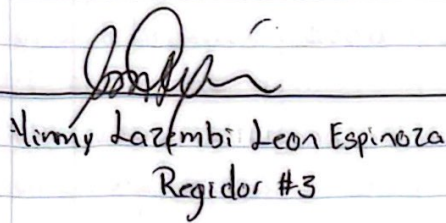 Yinmy Lazembi Leon Espinoza
Regidor #3